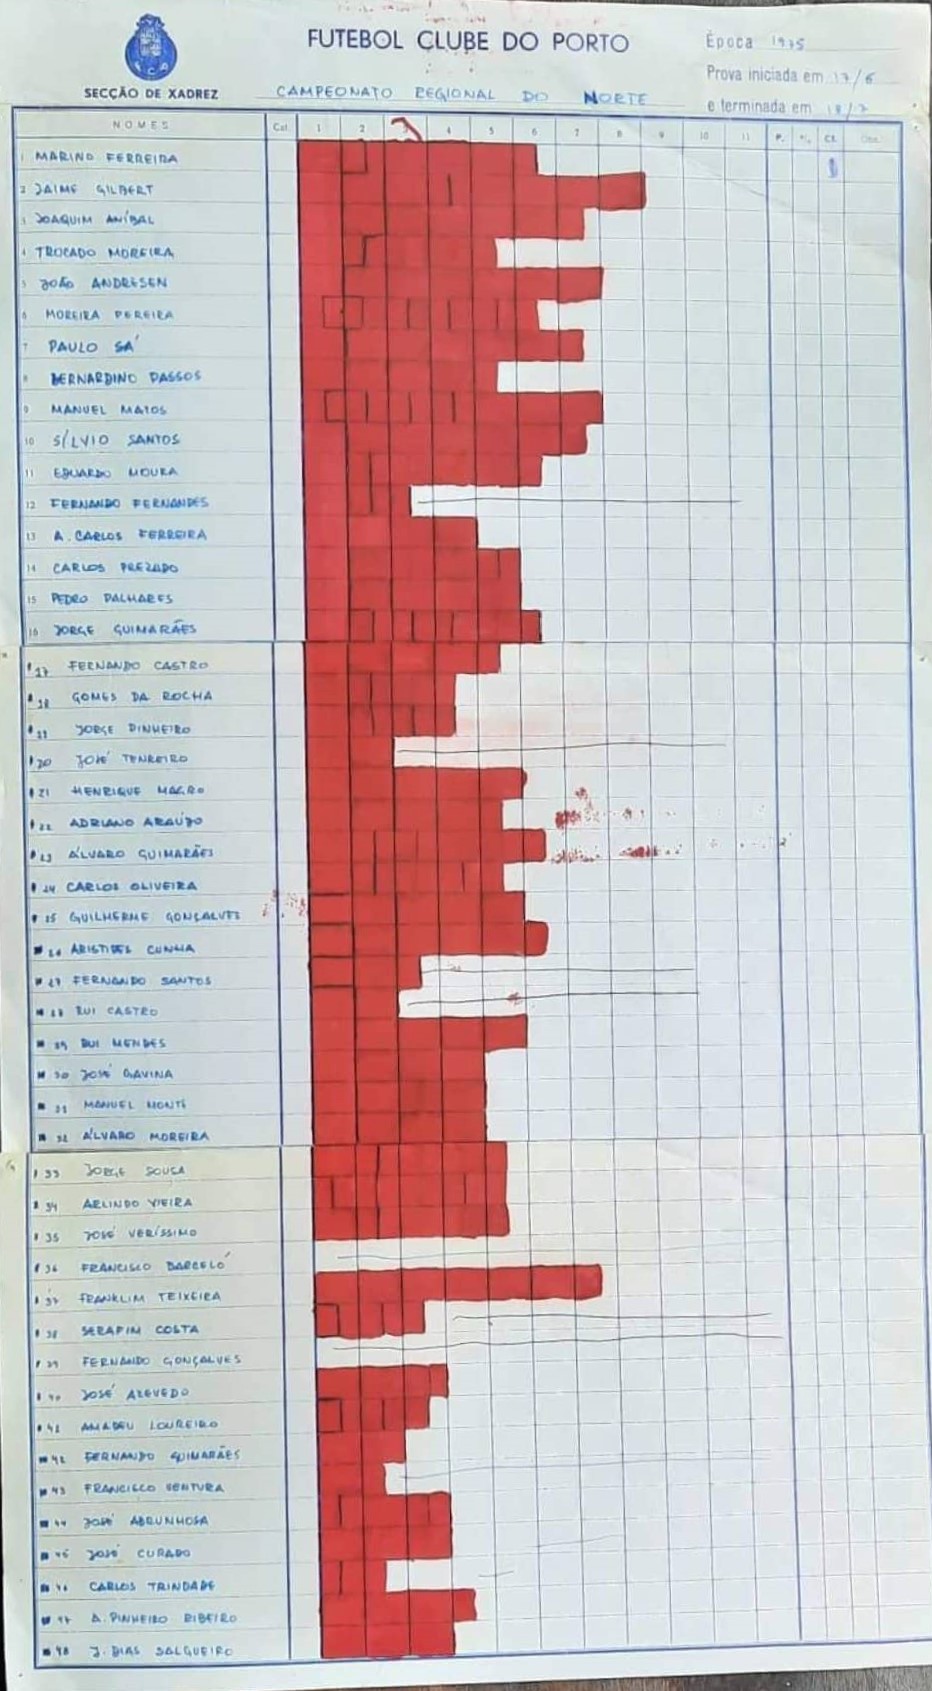 FUTEBOL CLUBE DO PORTO
SECÇÃO DE XADREZ
CAMPEONATO REGIONAL DO NORTE
Época 1975
Prova iniciada em 17/6
e terminada em 18/7
NOMES Cat. 1 2 3 4 5 6 7 8 9 10 11 P. Cl. Obs.
1 MARINO FERREIRA
2 JAIME GILBERT
3 JOAQUIM ANÍBAL
4 TROCADO MOREIRA
5 JOÃO ANDRESEN
6 MOREIRA PEREIRA
7 PAULO SÁ
8 BERNARDINO PASSOS
9 MANUEL MATOS
10 SÍLVIO SANTOS
11 EDUARDO MOURA
12 FERNANDO FERNANDES
13 A. CARLOS FERREIRA
14 CARLOS PREZADO
15 PEDRO PALHARES
16 JORGE GUIMARÃES
17 FERNANDO CASTRO
18 GOMES DA ROCHA
19 JORGE PINHEIRO
20 JOSÉ TENREIRO
21 HENRIQUE MAGRO
22 ADRIANO ARAÚJO
23 ÁLVARO GUIMARÃES
24 CARLOS OLIVEIRA
25 GUILHERME GONÇALVES
26 ARISTIDES CUNHA
27 FERNANDO SANTOS
28 RUI CASTRO
29 RUI MENDES
30 JOSÉ GAVINA
31 MANUEL MONTE
32 ÁLVARO MOREIRA
33 JORGE SOUSA
34 ARLINDO VIEIRA
35 JOSÉ VERÍSSIMO
36 FRANCISCO BARCELÓ
37 FRANKLIM TEIXEIRA
38 SERAFIM COSTA
39 FERNANDO GONÇALVES
40 JOSÉ AZEVEDO
41 AMADEU LOUREIRO
42 FERNANDO GUIMARÃES
43 FRANCISCO VENTURA
44 JOSÉ ABRUNHOSA
45 JOSÉ CURADO
46 CARLOS TRINDADE
47 A. PINHEIRO RIBEIRO
48 J. DIAS SALGUEIRO